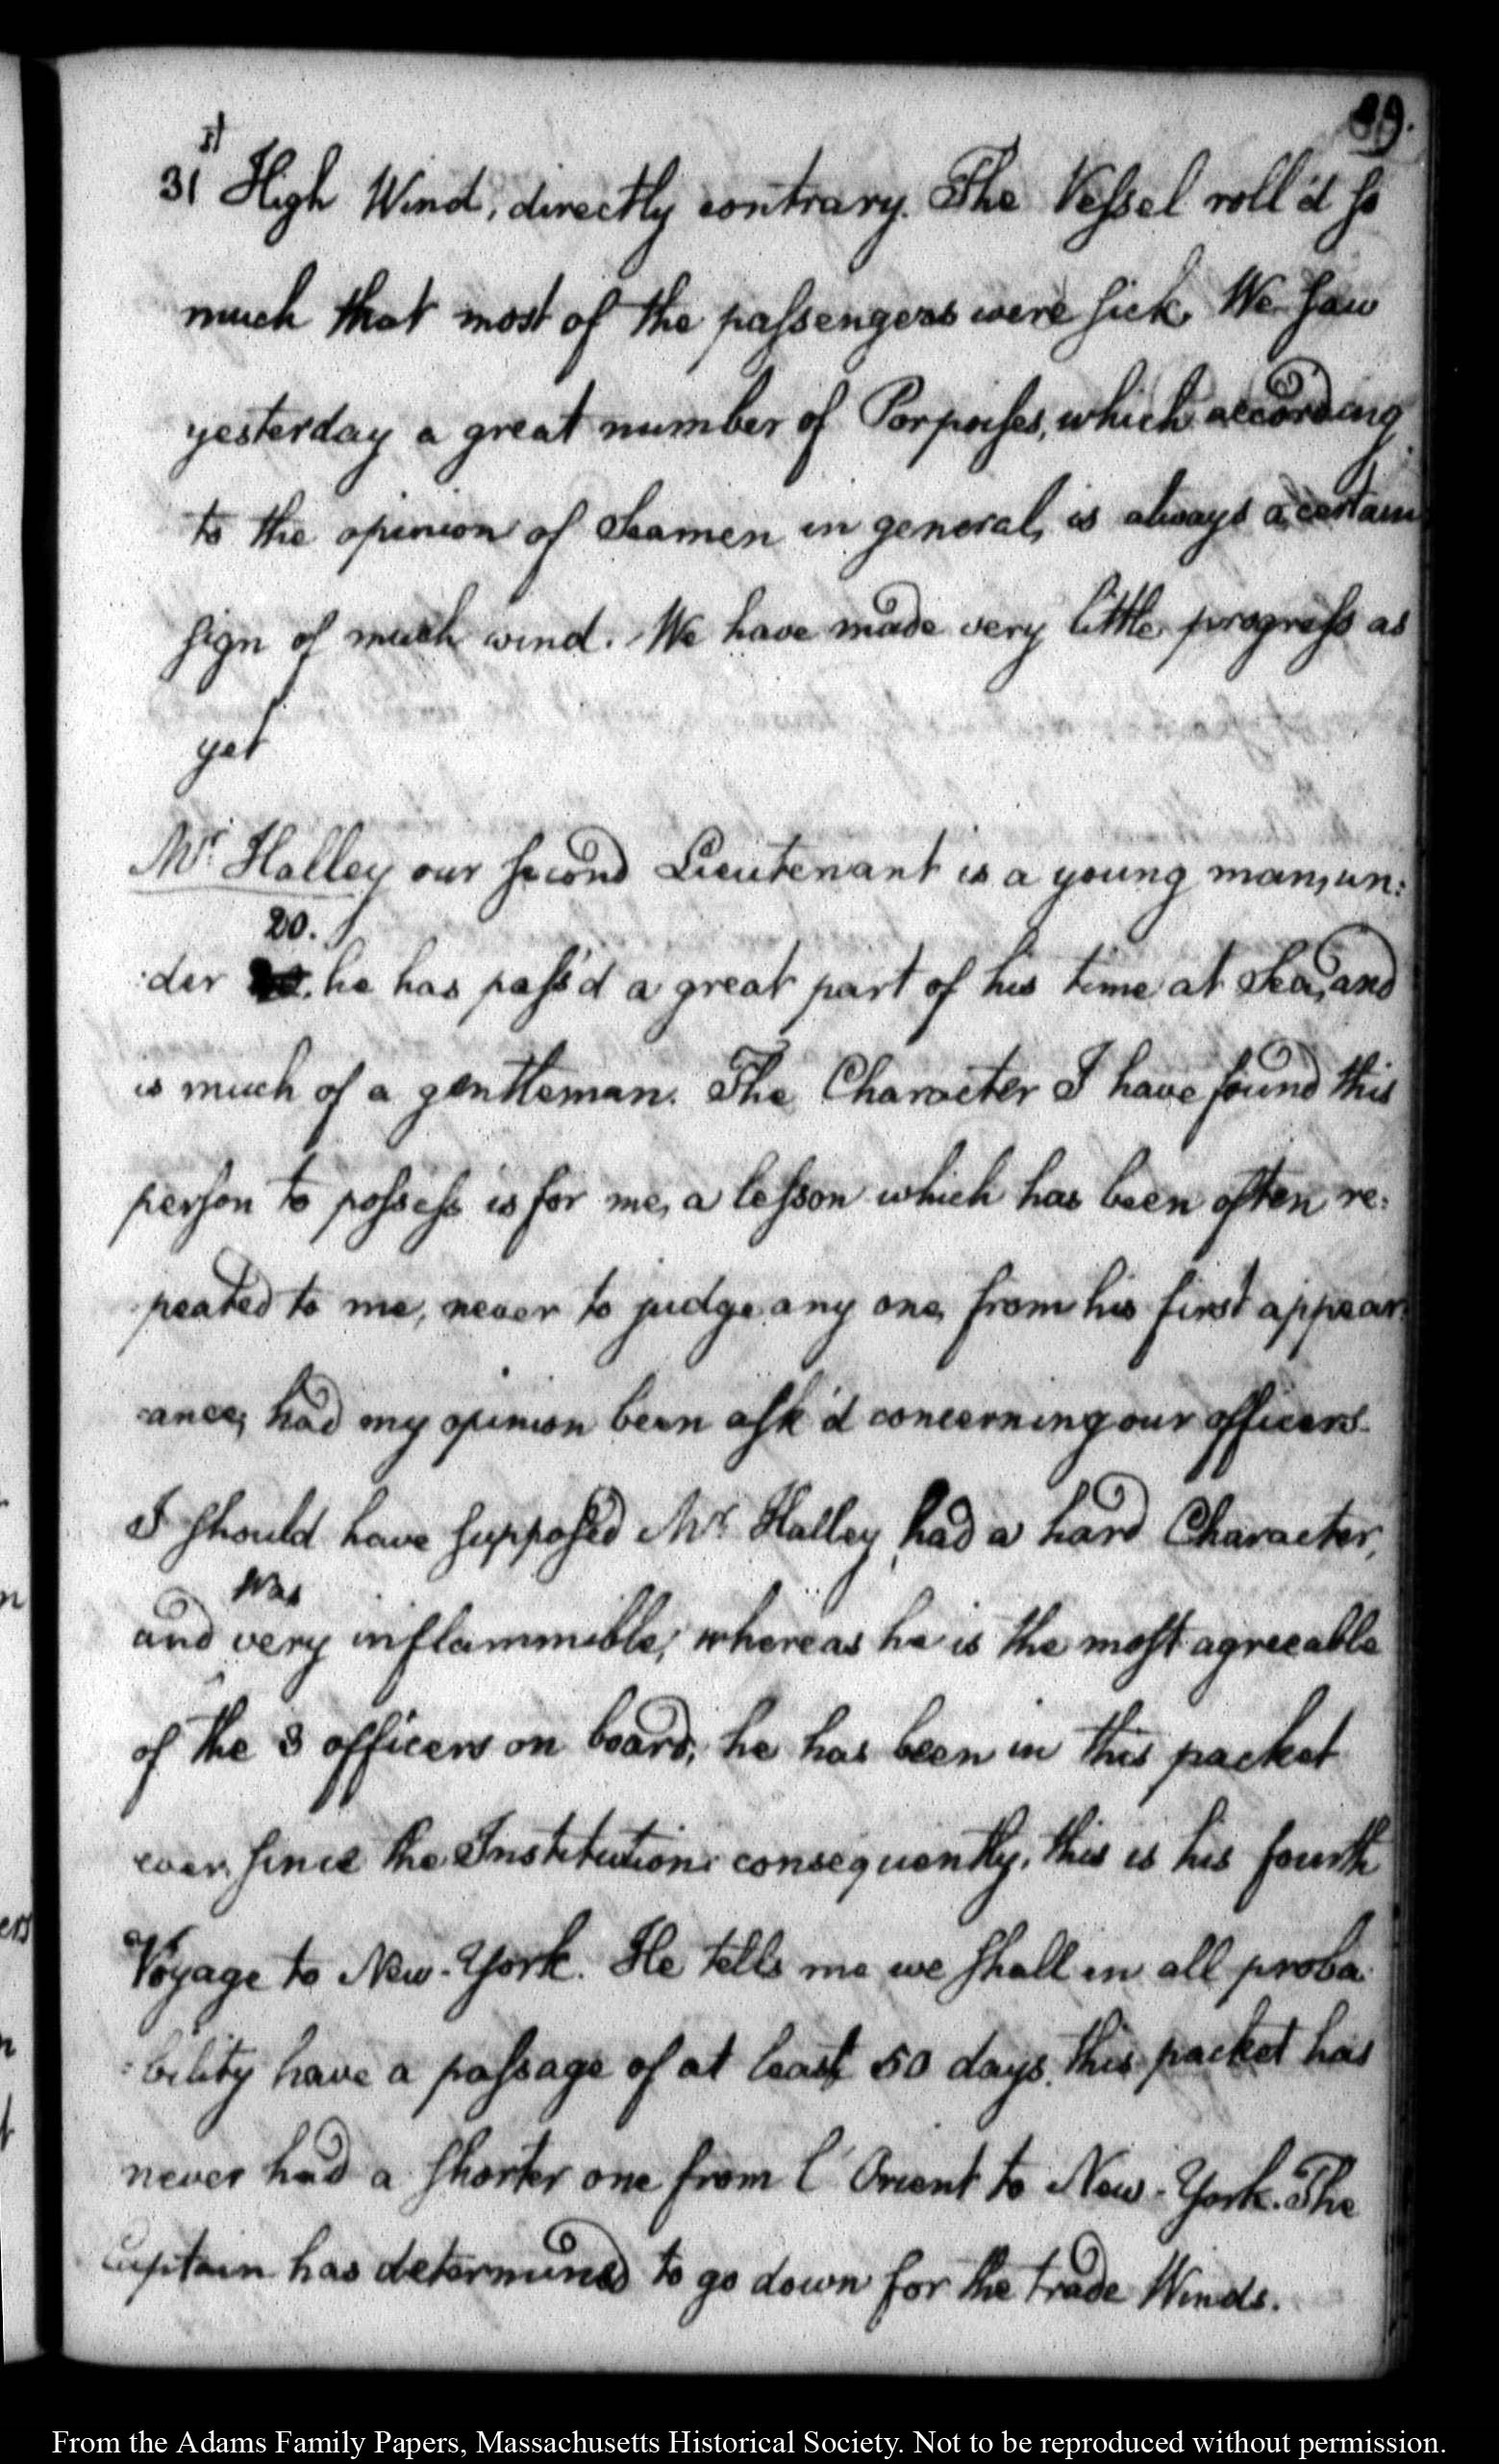 31st High Wind, directly contrary. The Vessel roll'd so
much that most of the passengers were sick. We saw
yesterday a great number of Porpoises, which according
to the opinion of Seamen in general, is always a certain
sign of much wind. We have made very little progress as
yet
Mr. Halley our second Lieutenant is a young man, un:
20.
:der he has pass'd a great part of his time at Sea, and
is much of a gentleman. The Character I have found this
person to possess is for me, a lesson which has been often re:
peated to me, never to judge any one, from his first appear:
:ance; had my opinion been ask'd concerning our officers.
I should have supposed Mr. Halley had a hard Character,
was
and very inflammible; whereas he is the most agreeable
of the 3 officers on board; he has been in this packet
ever since the Institution: consequently, this is his fourth
Voyage to New-York. He tells me we shall in all proba:
:bility have a passage of at least 50 days. this packet has
never had a shorter one from l'Orient to New-York. The
Captain has determined to go down for the trade Winds.
From the Adams Family Papers, Massachusetts Historical Society. Not to be reproduced without permission.